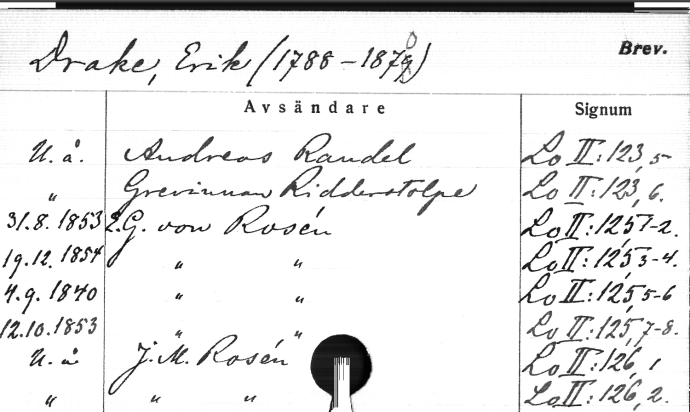 Drake, Erik (1788-1870) Brev.
Avsändare Signum
U. å. Andreas Randel Lo II:123, 5
" Grevinnan Ridderstolpe Lo II:123, 6.
31.8.1853 E.G. von Rosén Lo II:125, 1-2.
19.12.1854 " " Lo II:125, 3-4.
4.9.1840 " " Lo II:125, 5-6
12.10.1853 " " Lo II:125, 7-8.
U. å J. M. Rosén Lo II:126, 1
" " " Lo II:126, 2.